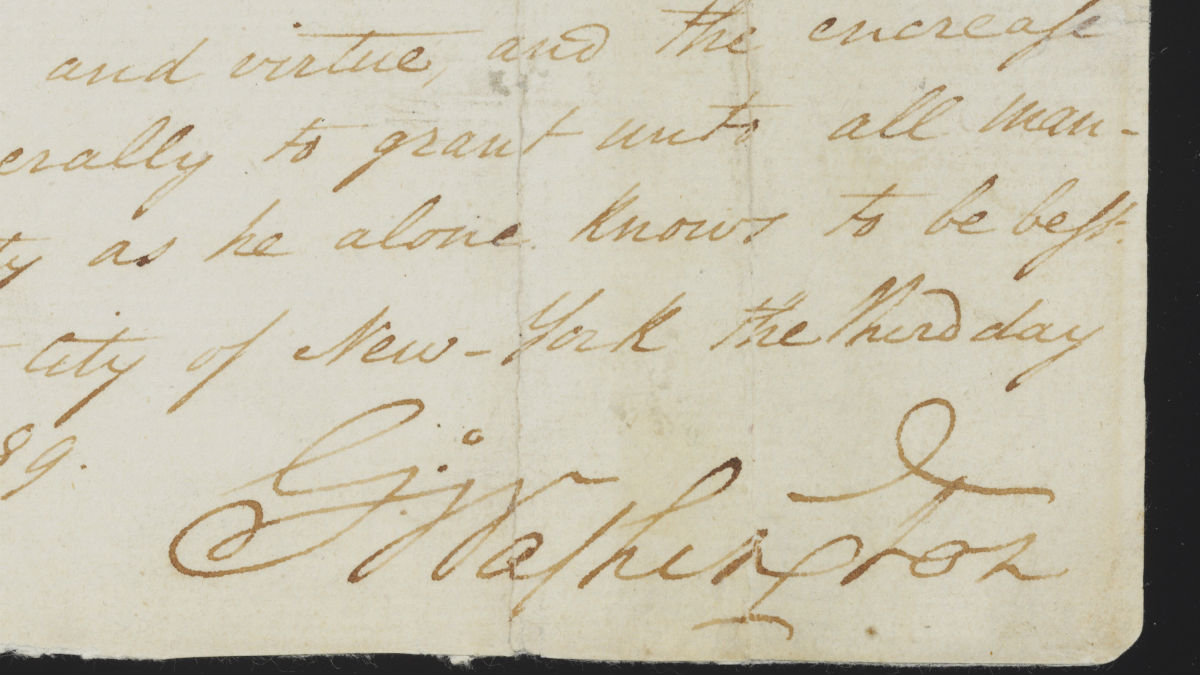 and virtue, and the encreaſe
erally to grant unto all man-
ty as he alone knows to be beſt.
City of New-York the third day
89.
Go: Waſhington